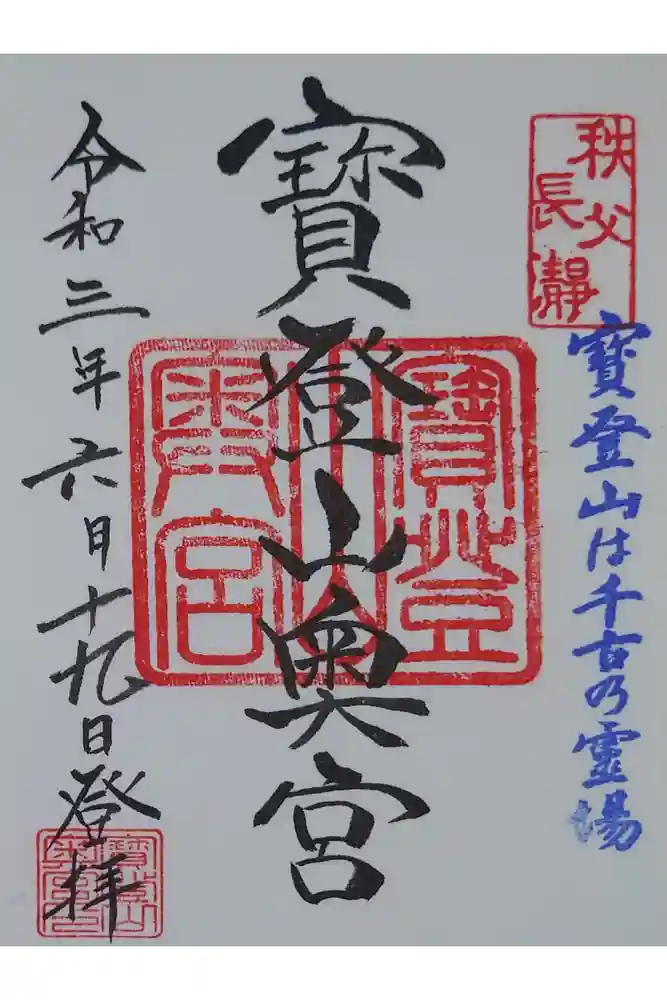 秩父
長瀞
寶登山は千古の霊場
寶登山奥宮
寶登
山
奥宮
令和三年六月十九日登拝